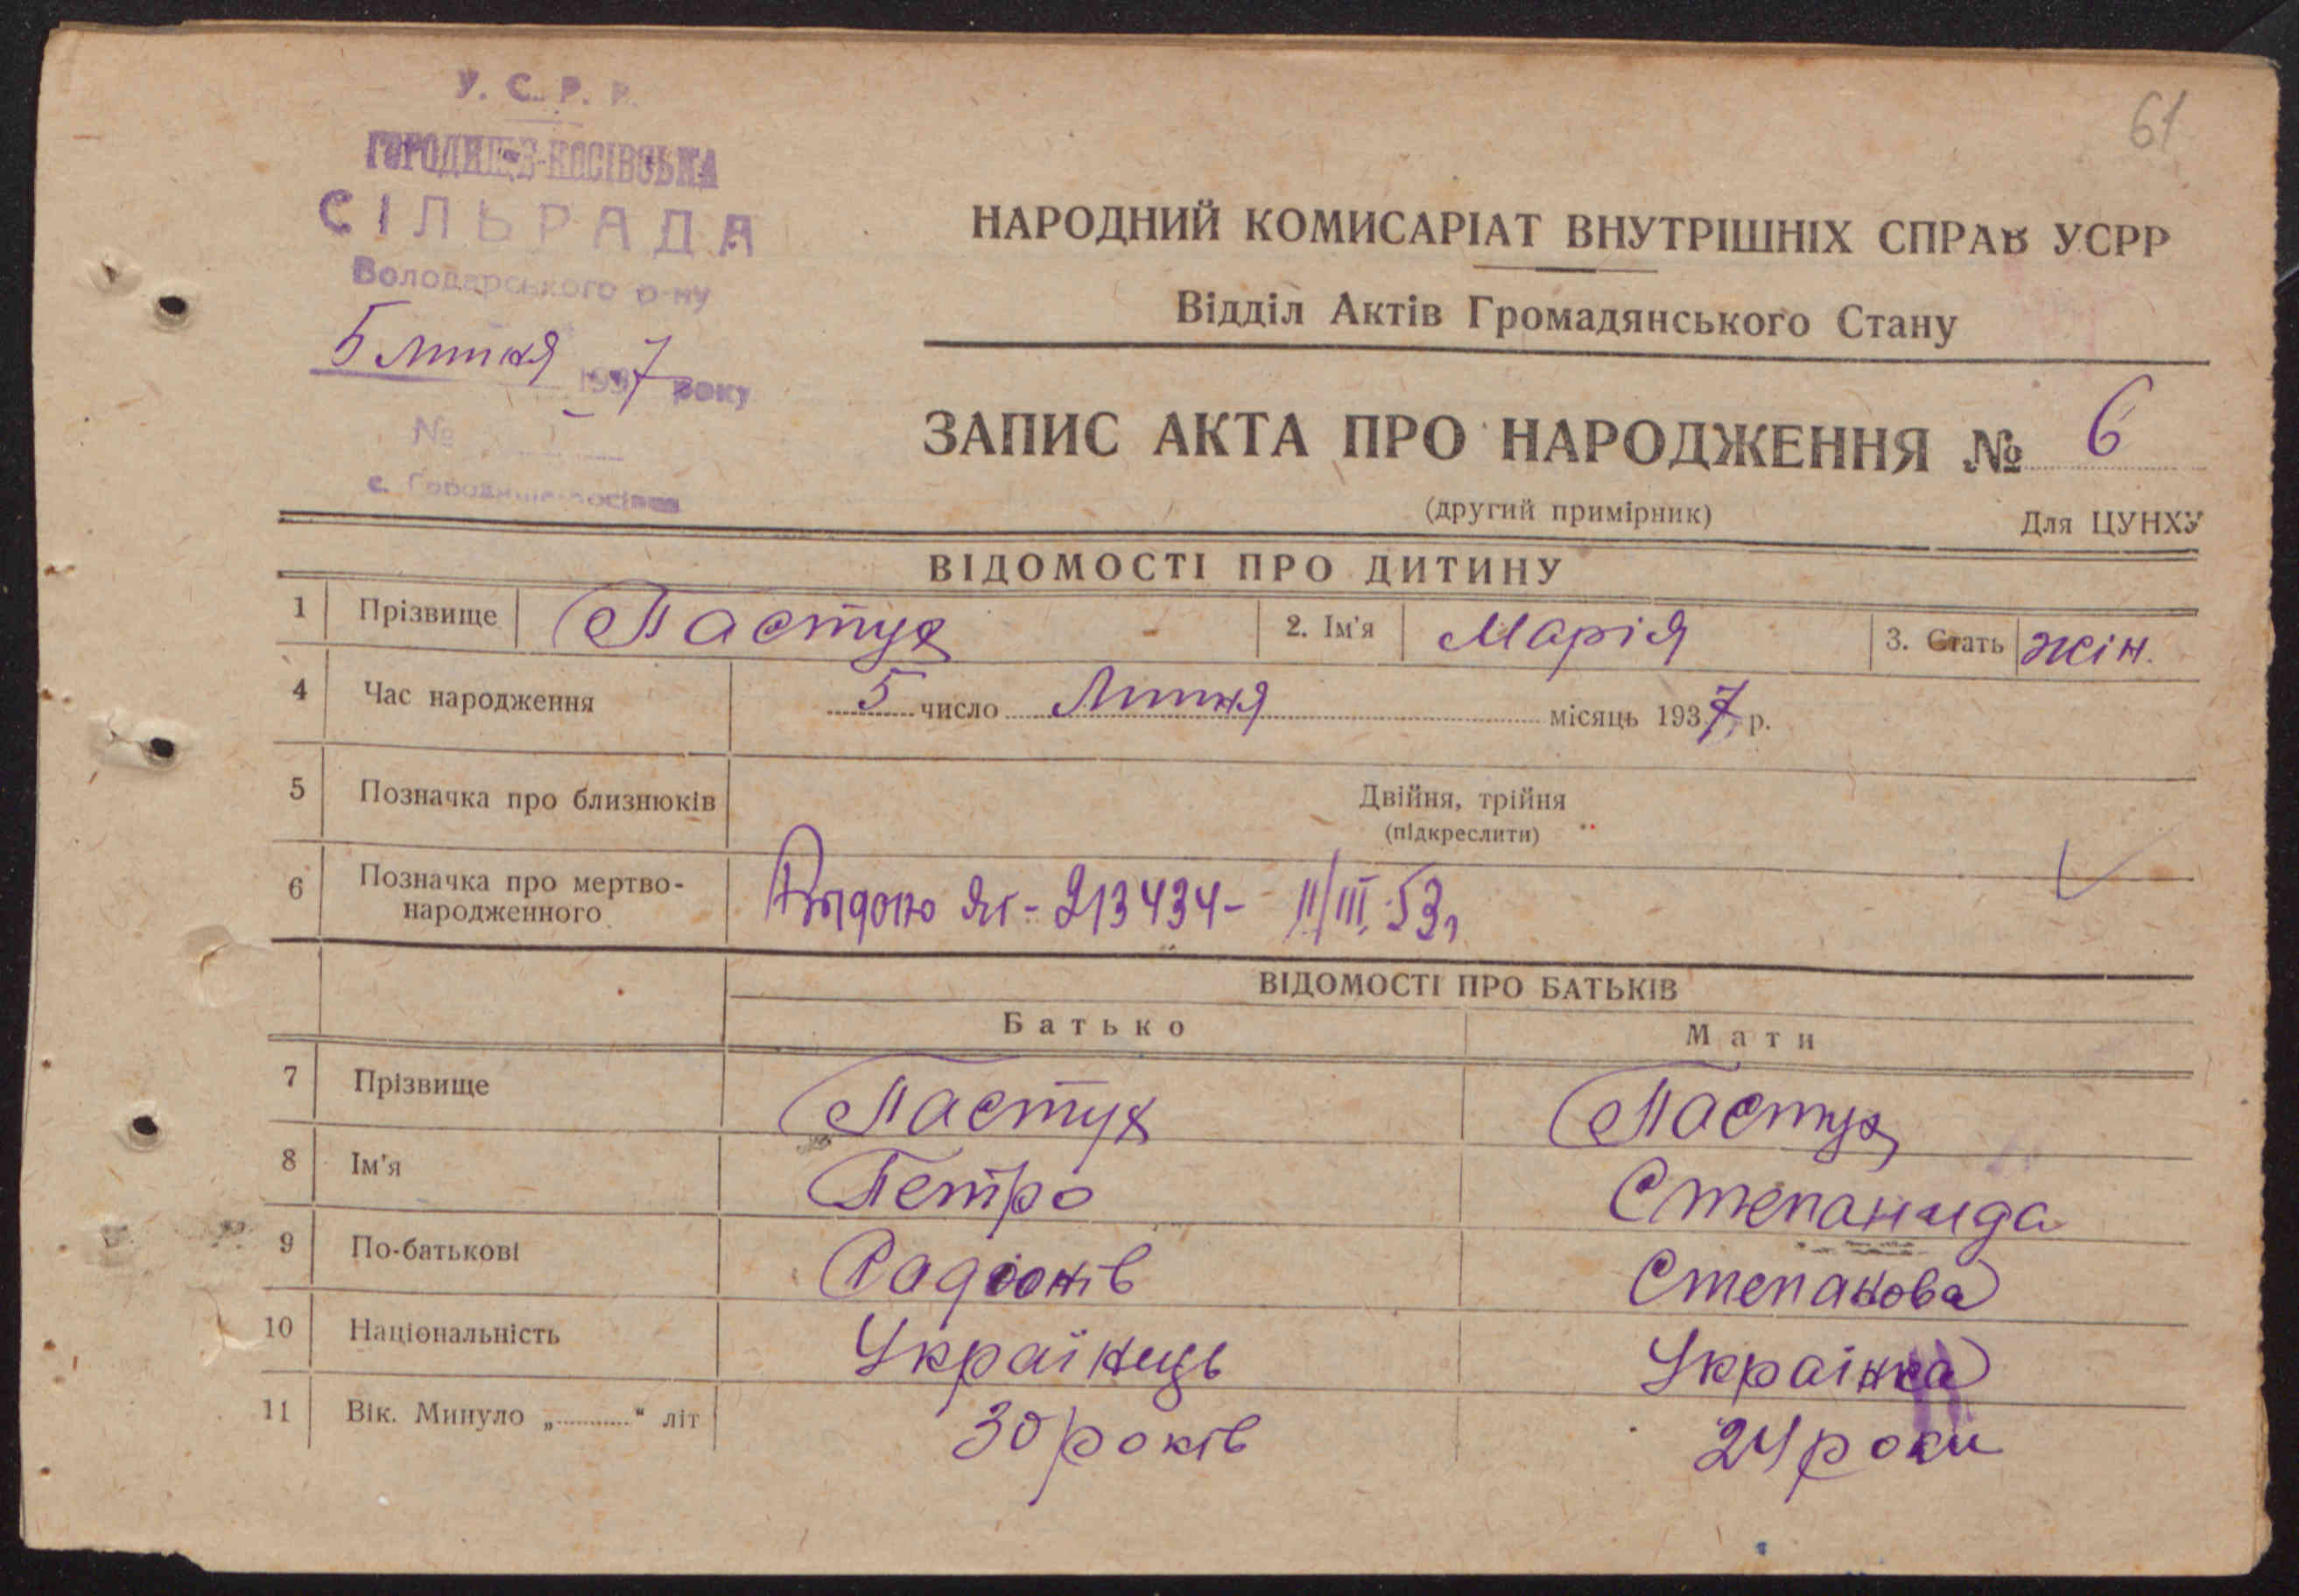 61
У. С. Р. Р.
ГОРОДИЩЕ-КОСІВСЬКА
СІЛЬРАДА
Володарського р-ну
5 Липня 1937 року
№
с. Городище-Косівка
НАРОДНИЙ КОМИСАРІАТ ВНУТРІШНІХ СПРАВ УСРР
Відділ Актів Громадянського Стану
ЗАПИС АКТА ПРО НАРОДЖЕННЯ № 6
(другий примірник)
Для ЦУНХУ
ВІДОМОСТІ ПРО ДИТИНУ
1 Прізвище Пастух 2. Ім'я Марія 3. Стать жін.
4 Час народження 5 число місяць 1937 р.
5 Позначка про близнюків Двійня, трійня
(підкреслити)
6 Позначка про мертво-
народженного 213434- 11/III.53
ВІДОМОСТІ ПРО БАТЬКІВ
Батько Мати
7 Прізвище Пастух Пастух
8 Ім'я Петро Степанида
9 По-батькові Радіонів Степанова
10 Національність Українець Украінка
11 Вік. Минуло „..........“ літ 30 років 24 роки